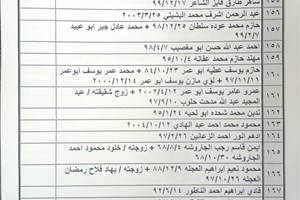 ١٥٥ ماهر طارق فايز الشاعر ٩٩/١٢/١٧
١٥٦ عبد الرحمن اشرف محمد البشيتي ٢٠٠٣/٣/٢٥
١٥٧ حازم محمد عوده سلطان ٩٨/١٢/٢٥ + محمد عادل جبر ابو عبيد
٩٩/٢/٧
١٥٨ احمد عبد الله حسن ابو مغصيب ٩٨/٤/٧
١٥٩ مهند حازم محمد عفانه ٩٥/١٠/٤
١٦٠ حازم يوسف عطيه ابو عمر ٨٤/١٠/٢٣ + محمد عمر يوسف ابو عمر
٩٧/١١/١١ + لؤي مازن يوسف ابو عمر ٢٠٠٠/١٢/١٤
١٦١ عمرو عامر يوسف ابو عمر ٢٠٠٢/٤/٢ + زوج شقيقته / عبد
المجيد عبد الله مدحت حلوب ٩٧/٩/١٠
١٦٢ نادين محمد شحده ابو لحيه ٩٤/١٠/١
١٦٣ محمود محمد احمد عبد الهادي ٢٠٠٤/١٠/١٢
١٦٤ ادهم انور احمد الزعانين ٩٧/٢/٦
١٦٥ ايمن قاسم رجب الجاروشه ٦٨/٨/٤ + زوجته / خلود محمود احمد
الجاروشه ٦٨/١٠/٣٠
١٦٦ محمود نعيم ابراهيم العجله ٨٨/١٢/٩ + زوجته / نهاد فلاح رمضان
العجله ٩٧/١٠/٢٦
١٦٧ فادي ابراهيم احمد الناطور ٩٢/٦/١٤